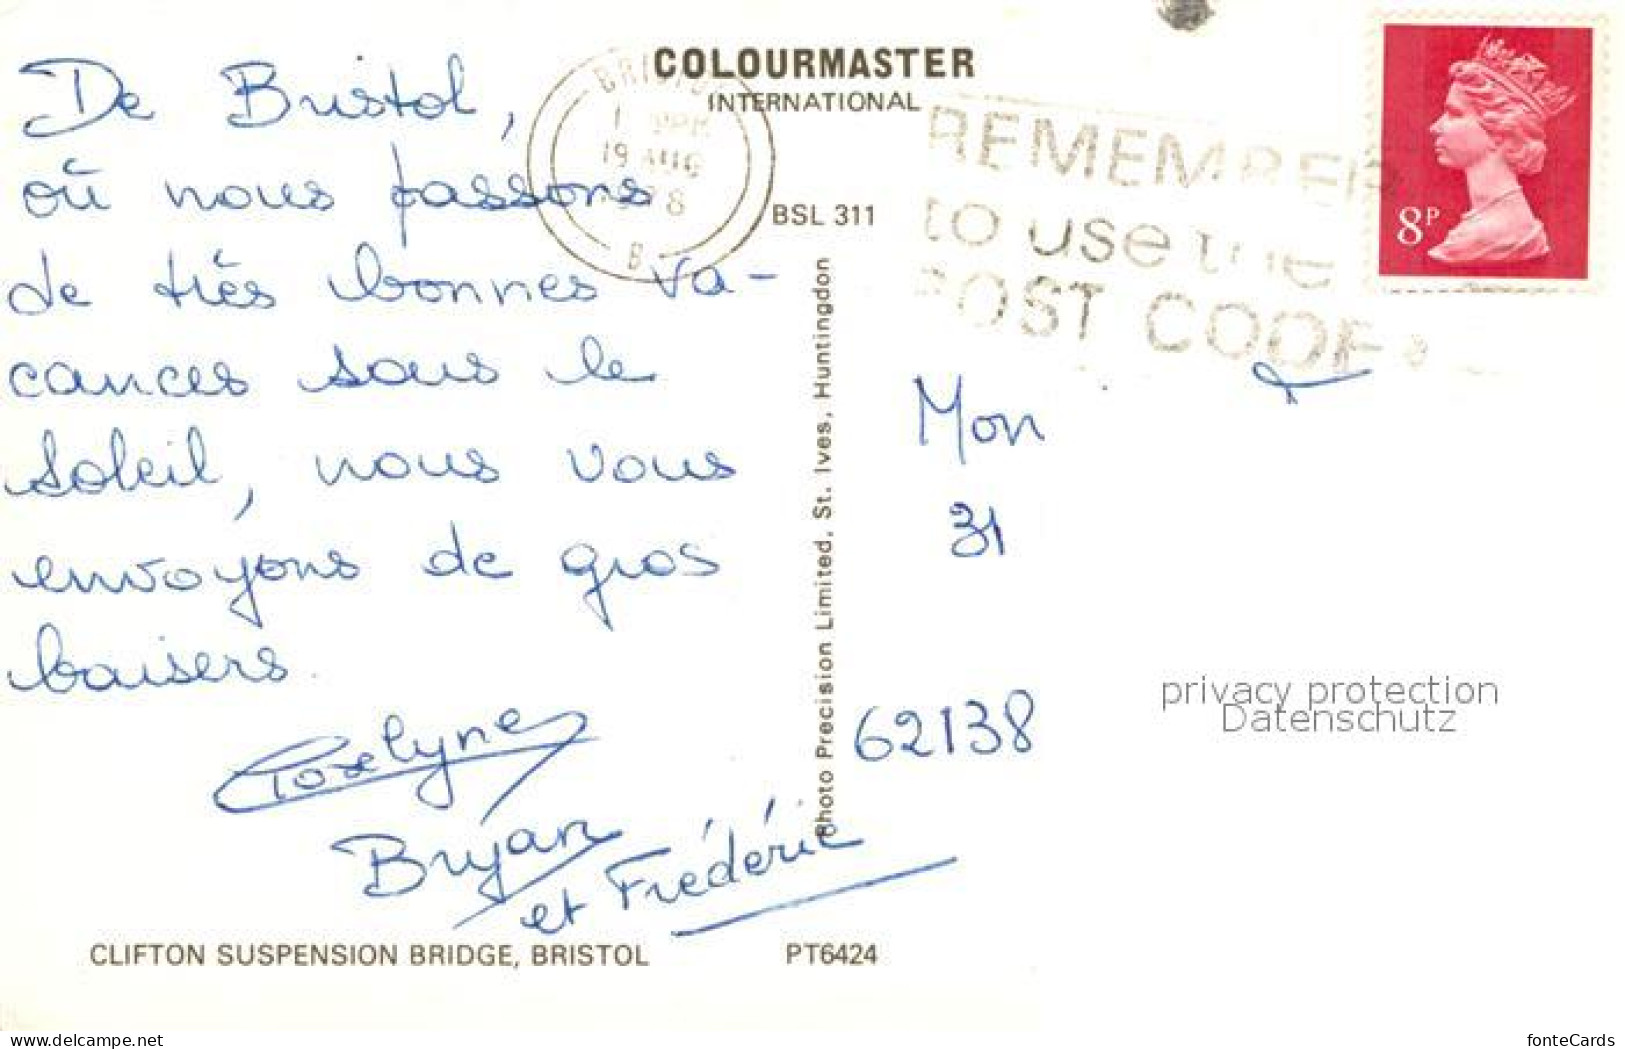 COLOURMASTER
INTERNATIONAL
19 AUG
8
B
REMEMBER
to use the
POST CODE
8P
BSL 311
De Bristol,
où nous passons
de très bonnes va-
cances sous le
soleil, nous vous
envoyons de gros
baisers.
Roselyne
Bryan
et Frédéric
Photo Precision Limited, St. Ives, Huntingdon
Mon
31
62138
privacy protection
Datenschutz
CLIFTON SUSPENSION BRIDGE, BRISTOL
PT6424
www.delcampe.net
fonteCards